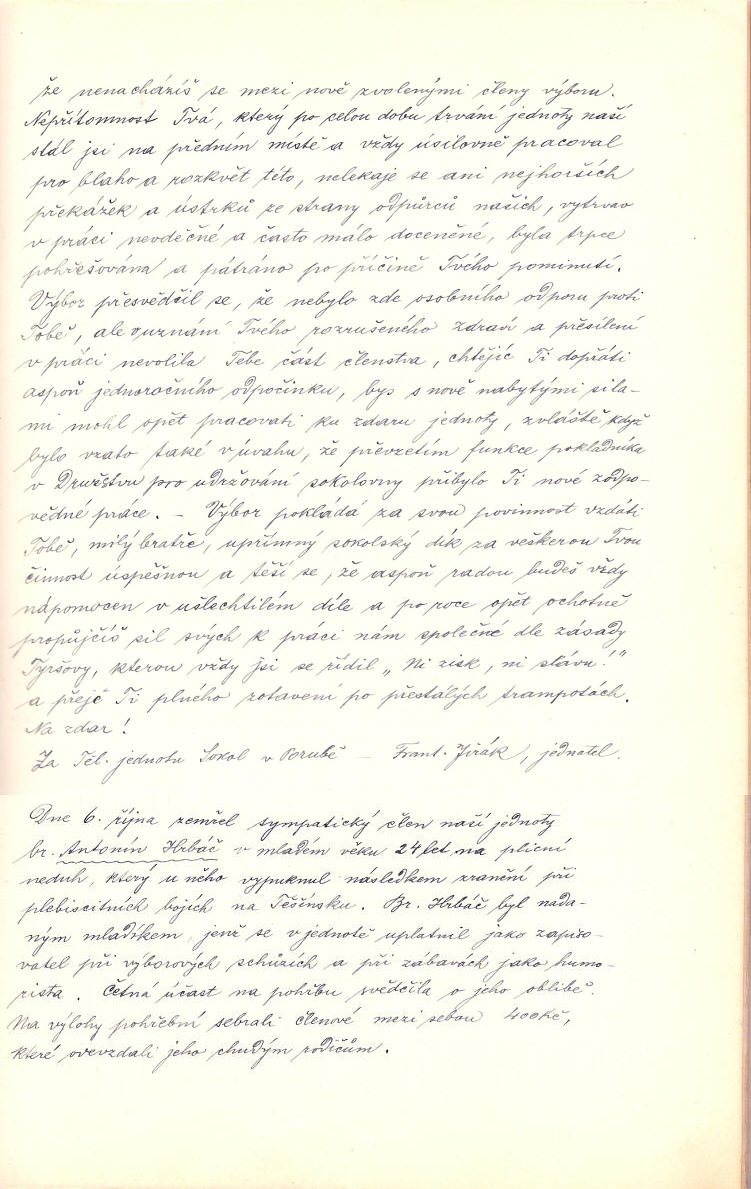 že nenacházíš se mezi nově zvolenými členy výboru.
Nepřítomnost Tvá, který po celou dobu trvání jednoty naší
stál jsi na předním místě a vždy úsilovně pracoval
pro blaho a rozkvět této, nelekaje se ani nejhorších
překážek a ústrků ze strany odpůrců našich, vytrvav
v práci nevděčné a často málo doceněné, byla trpce
pohřešována a pátráno po příčině Tvého pominutí.
Výbor přesvědčil se, že nebylo zde osobního odporu proti
Tobě, ale v uznání Tvého rozrušeného zdraví a přesílení
v práci nevolila Tebe část členstva, chtějíc Ti dopřáti
aspoň jednoročního odpočinku, bys s nově nabytými sila-
mi mohl opět pracovati ku zdaru jednoty, zvláště když
bylo vzato také v úvahu, že převzetím funkce pokladníka
v Družstvu pro udržování sokolovny přibylo Ti nové zodpo-
vědné práce. – Výbor pokládá za svou povinnost vzdáti
Tobě, milý bratře, upřímný sokolský dík za veškerou Tvou
činnost úspěšnou a těší se, že aspoň radou budeš vždy
nápomocen v ušlechtilém díle a po roce opět ochotně
propůjčíš sil svých k práci nám společné dle zásady
Tyršovy, kterou vždy jsi se řídil „Ni zisk, ni slávu!"
a přeje Ti plného zotavení po přestálých trampotách.
Na zdar!
Za Těl. jednotu Sokol v Porubě – Frant. Jirák, jednatel.
Dne 6. října zemřel sympatický člen naší jednoty
br. Antonín Hrbáč v mladém věku 24 let na plicní
neduh, který u něho vypuknul následkem zranění při
plebiscitních bojích na Těšínsku. Br. Hrbáč byl nada-
ným mladíkem, jenž se v jednotě uplatnil jako zapiso-
vatel při výborových schůzích a při zábavách jako humo-
rista. Četná účast na pohřbu svědčila o jeho oblibě.
Na výlohy pohřební sebrali členové mezi sebou 400 Kč,
které odevzdali jeho chudým rodičům.